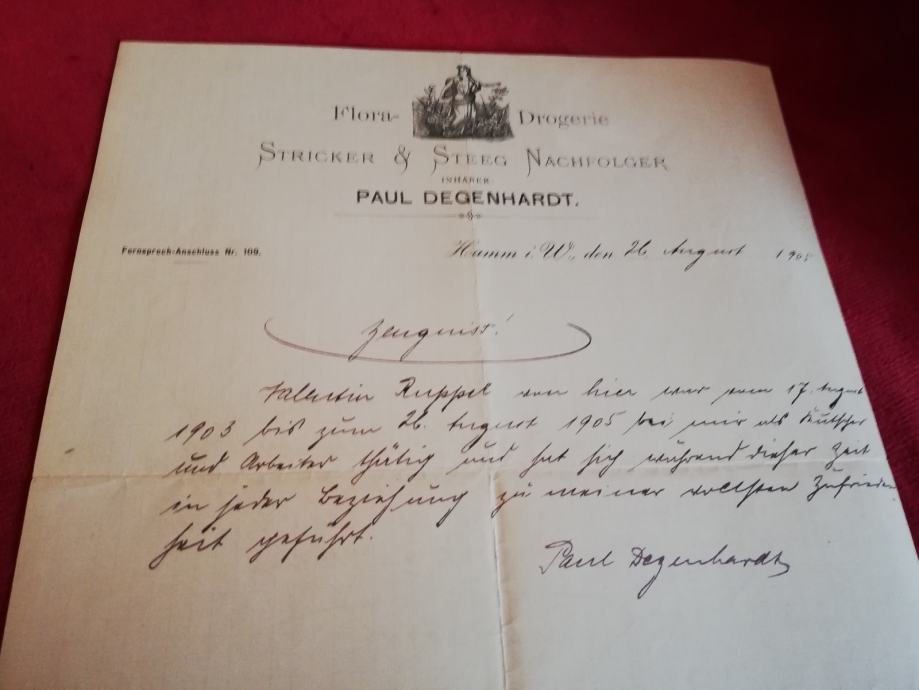 Flora- Drogerie
STRICKER & STEEG NACHFOLGER
INHABER:
PAUL DEGENHARDT.
Fernsprech-Anschluss Nr. 109.
Hamm i. W., den 26. August 1905
Zeugniss!
Valentin Ruppel von hier war vom 17. August
1903 bis zum 26. August 1905 bei mir als Kutscher
und Arbeiter thätig und hat sich während dieser Zeit
in jeder Beziehung zu meiner vollsten Zufrieden
heit geführt.
Paul Degenhardt